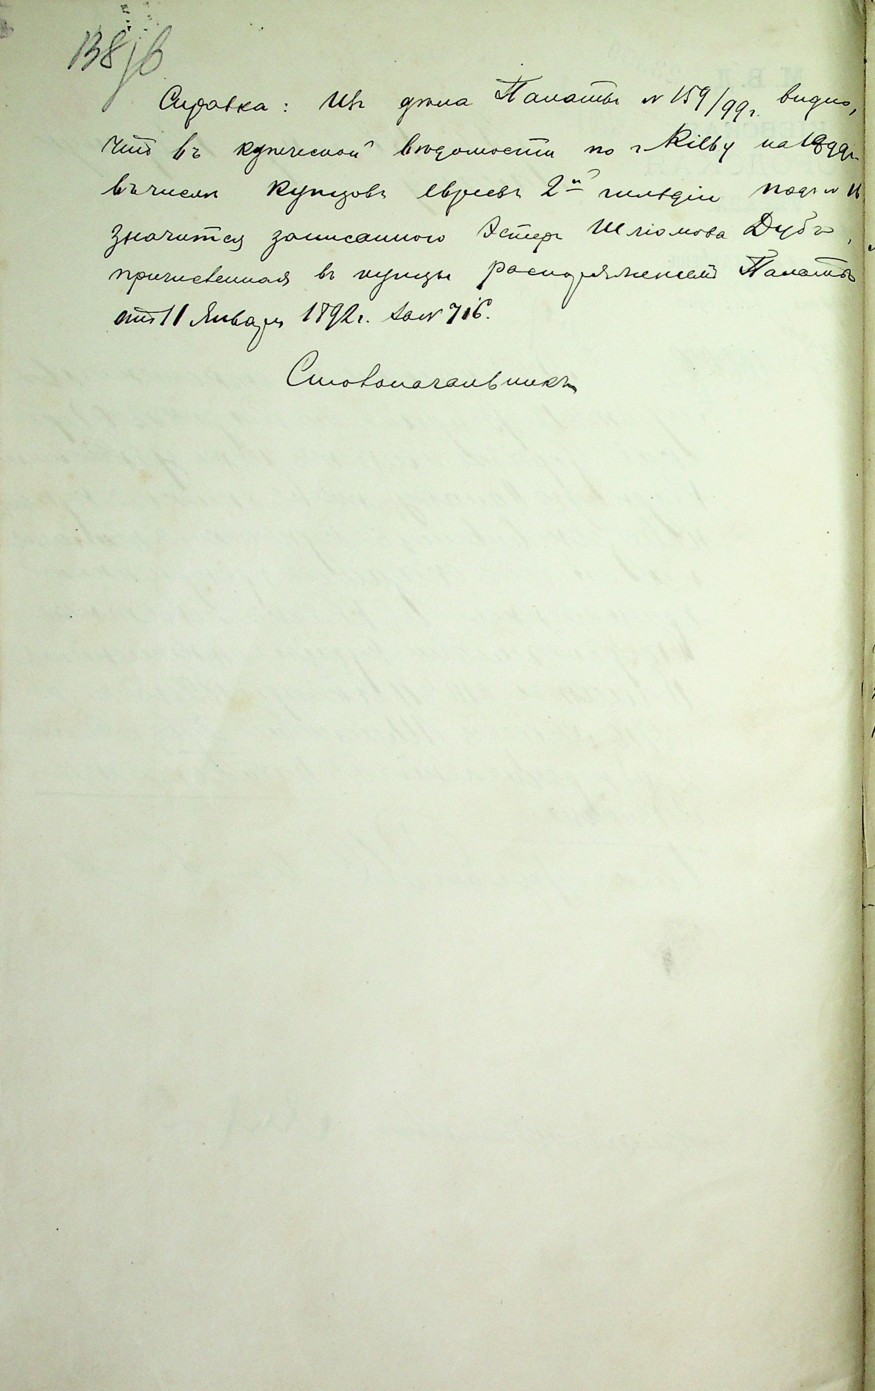 138/в
Справка: Изъ дѣла Палаты № 159/99 г. видно,
что въ купеческой вѣдомости по г. Кіеву на 1899 г.
въ числѣ купцовъ евреевъ 2й гильдіи подъ №
значится записанною Эстеръ Шліомова Дубъ,
причисленная въ купцы распоряженіемъ Палаты
отъ 11 Января 1892 г. за № 716.
Столоначальникъ